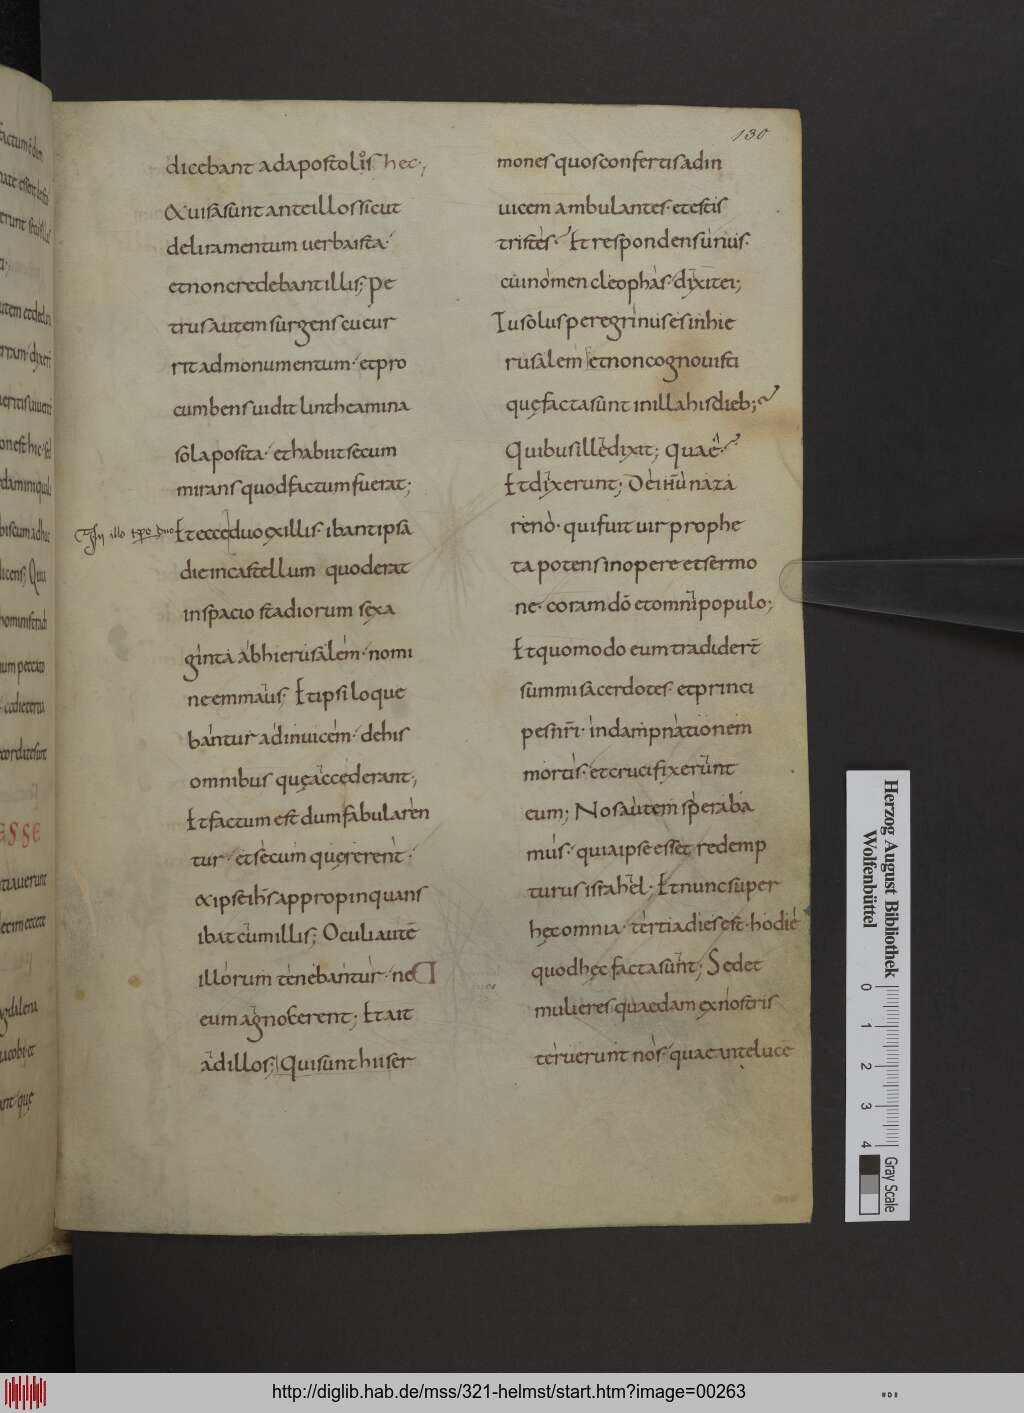 130
dicebant ad apostolos hec;
Et uisa sunt ante illos sicut
deliramentum uerba ista·
et non credebant illis; Pe
trus autem surgens cucur
rit ad monumentum· et pro
cumbens uidit lintheamina
sola posita· et habiit secum
mirans quod factum fuerat;
Et ecce duo ex illis· ibant ipsa
die in castellum quod erat
in spacio stadiorum sexa
ginta ab hierusalem· nomi
ne emmaus; Et ipsi loque
bantur ad inuicem· de his
omnibus quę accederant;
Et factum est dum fabularen
tur· et secum quęrerent·
et ipse ih̅s appropinquans
ibat cum illis; Oculi autē
illorum tenebantur· ne
eum agnoscerent; Et ait
ad illos; Qui sunt hii ser
mones quos confertis ad in
uicem ambulantes· et estis
tristes· Et respondens unus·
cui nomen cleophas· dixit ei;
Tu solus peregrinus es in hie
rusalem et non cognouisti
quę facta sunt in illa his dieb;
Quibus ille dixit; Quae·
Et dixerunt; De ih̅u naza
reno· qui fuit uir prophe
ta potens in opere et sermo
ne· coram dō et omni populo;
Et quomodo eum tradider̄t
summi sacerdotes· et princi
pes nr̄i· in dampnationem
mortis· et crucifixerunt
eum; Nos autem speraba
mus· quia ipse esset redemp
turus israhel· Et nunc super
hęc omnia· tertia dies est· hodie
quod hęc facta sunt; Sed et
mulieres quaedam ex nostris
terruerunt nos· quae ante luce
Herzog August Bibliothek
Wolfenbüttel
0 1 2 3 4
Gray Scale
http://diglib.hab.de/mss/321-helmst/start.htm?image=00263